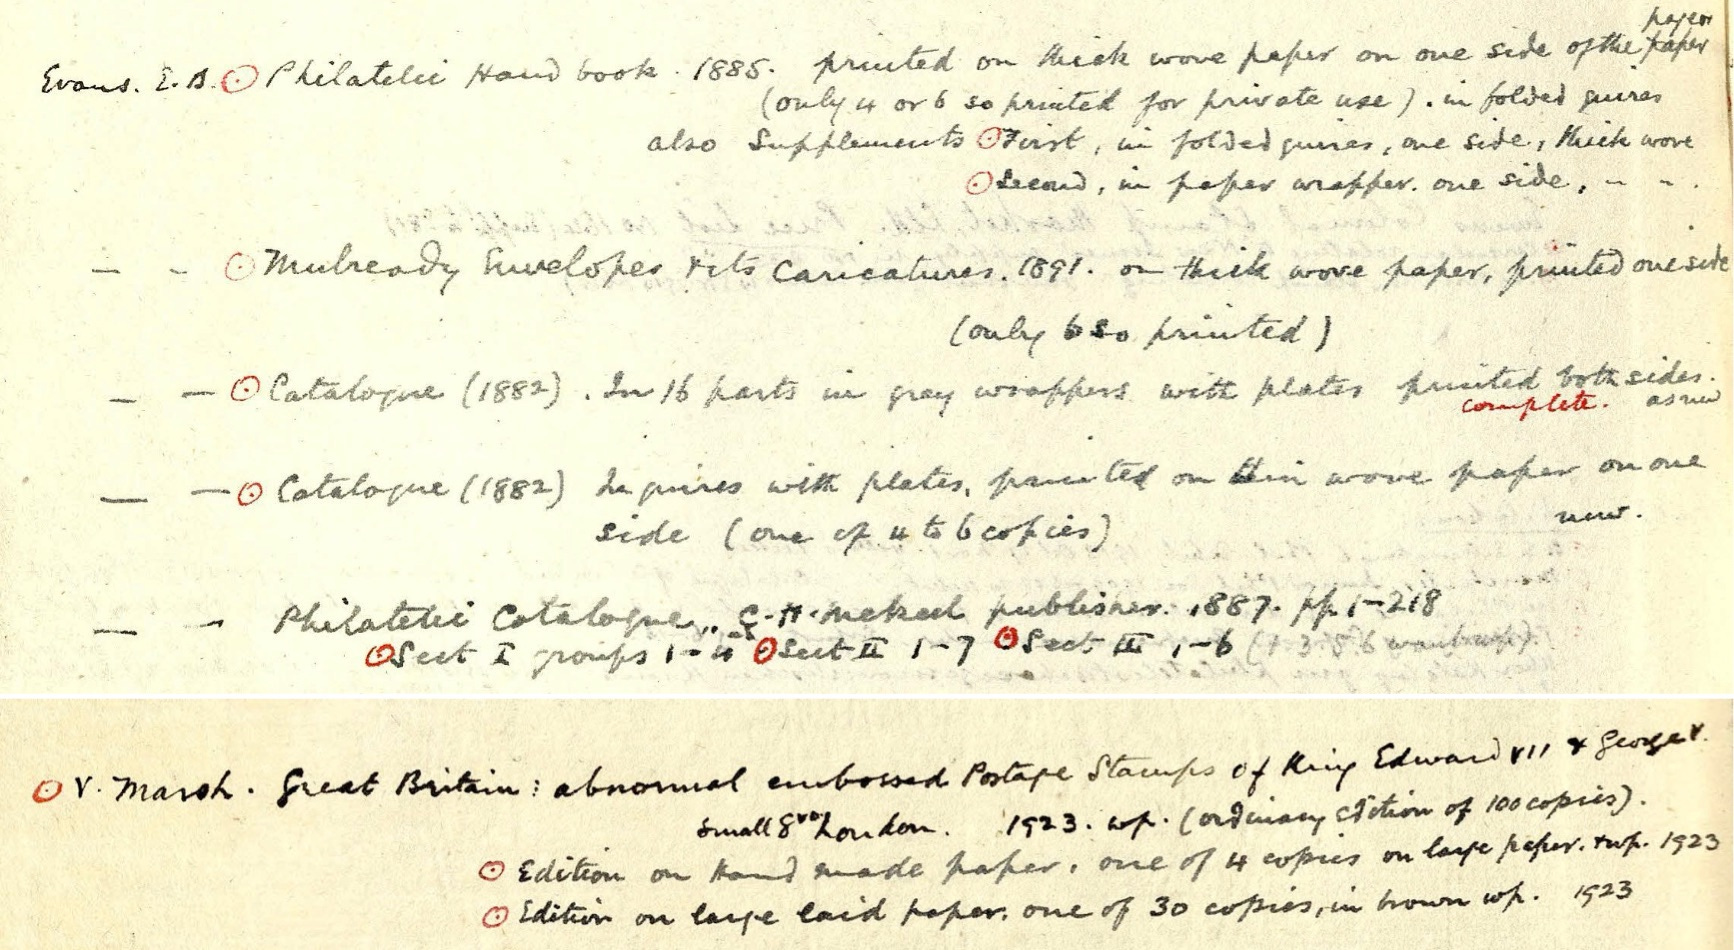 Evans. E.B. Philatelic Handbook. 1885. printed on thick wove paper on one side of the paper
(only 4 or 6 so printed for private use). in folded quires
also Supplements First, in folded quires, one side, thick wove
Second, in paper wrapper. one side, " " .
— - Mulready Envelopes & its Caricatures. 1891. on thick wove paper, printed one side
(only 6 so printed)
— — Catalogue (1882). In 16 parts in gray wrappers with plates printed both sides.
complete. as new
— — Catalogue (1882) In quires with plates, printed on thin wove paper on one
side (one of 4 to 6 copies) new.
— - Philatelic Catalogue, C.H. Mekeel publisher. 1887. pp 1-218
Sect I groups 1-4 Sect II 1-7 Sect III 1-6 (1.3.5.6
V. Marsh. Great Britain: abnormal embossed Postage Stamps of King Edward VII & George V.
Small 8vo London. 1923. wp. (ordinary edition of 100 copies).
Edition on Hand made paper. one of 4 copies on large paper. & wp. 1923
Edition on large laid paper. one of 30 copies, in brown wp. 1923